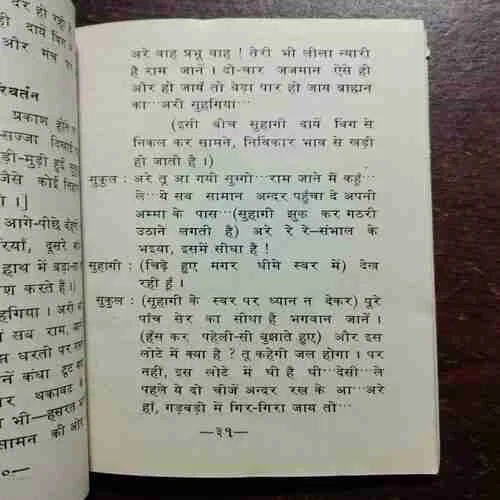 दर हो रही है
दायें विंग
और मंच
रिवर्तन
प्रकाश होते
सज्जा दिखाई
ड़ी-मुड़ी हुई
जैसे कोई
हो ।]
आगे-पीछे
रियाँ, दूसरे
हाथ में
श करते हैं।)
हगिया। अरी
में सब राम
स धरती पर
नें कंधा टूट
थकावट
भी—हसरत
सामन की और
०—
अरे वाह प्रभू वाह ! तेरी भी लीला न्यारी
है राम जाने । दो-चार जजमान ऐसे ही
और हो जायें तो बेड़ा पार हो जाय ब्राह्मन
का···अरी सुहगिया···
(इसी बीच सुहागी दायें विंग से
निकल कर सामने, निर्विकार भाव से खड़ी
हो जाती है ।)
सुकुल : अरे तू आ गयी सुग्गो···राम जाने में कहूँ···
ले···ये सब सामान अन्दर पहुँचा दे अपनी
अम्मा के पास···(सुहागी झुक कर गठरी
उठाने लगती है) अरे रे रे–संभाल के
भइया, इसमें सीधा है !
सुहागी : (चिढ़े हुए मगर धीमे स्वर में) देख
रही हूँ ।
सुकुल : (सुहागी के स्वर पर ध्यान न देकर) पूरे
पाँच सेर का सीधा है भगवान जानें ।
(हँस कर पहेली-सी बुझाते हुए) और इस
लोटे में क्या है ? तू कहेगी जल होगा । पर
नहीं, इस लोटे में घी है घी···देसी···ले
पहले ये दो चीजें अन्दर रख के आ···अरे
हाँ, गड़बड़ी में गिर-गिरा जाय तो···
—३१—